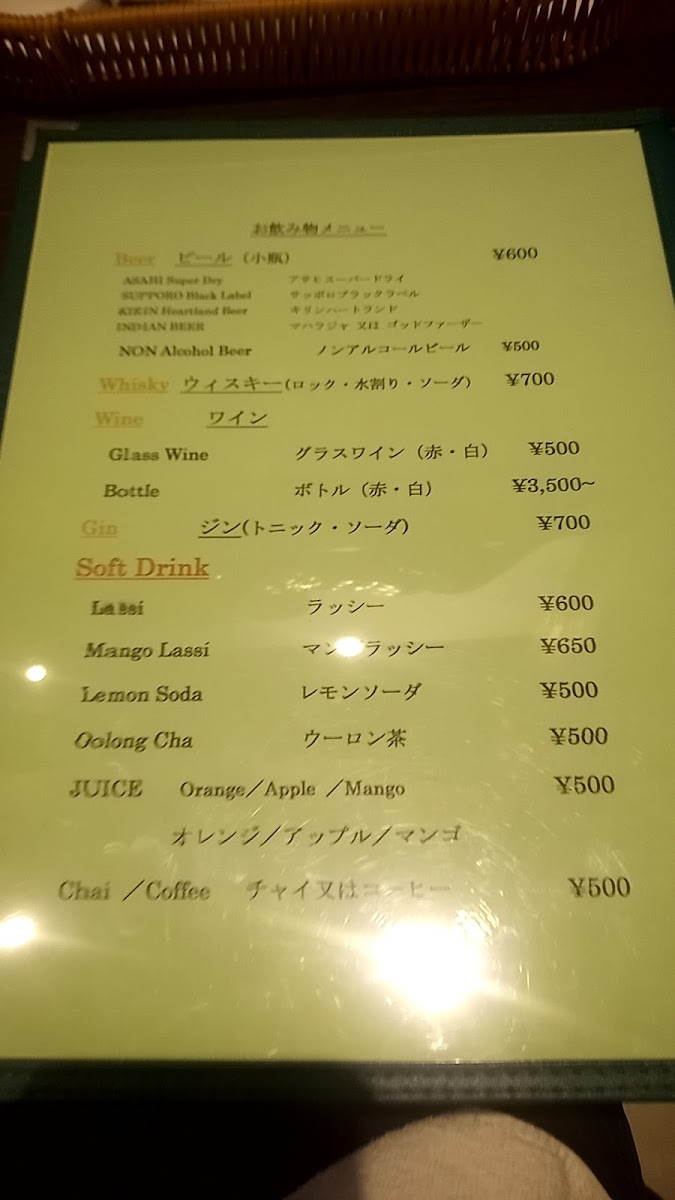 お飲み物メニュー
Beer ビール (小瓶) ¥600
ASAHI Super Dry アサヒスーパードライ
SUPPORO Black Label サッポロブラックラベル
KIRIN Heartland Beer キリンハートランド
INDIAN BEER マハラジャ 又は ゴッドファーザー
NON Alcohol Beer ノンアルコールビール ¥500
Whisky ウィスキー(ロック・水割り・ソーダ) ¥700
Wine ワイン
Glass Wine グラスワイン (赤・白) ¥500
Bottle ボトル (赤・白) ¥3,500~
Gin ジン(トニック・ソーダ) ¥700
Soft Drink
Lassi ラッシー ¥600
Mango Lassi マンゴラッシー ¥650
Lemon Soda レモンソーダ ¥500
Oolong Cha ウーロン茶 ¥500
JUICE Orange／Apple ／Mango ¥500
オレンジ／アップル／マンゴ
Chai ／Coffee チャイ又はコーヒー ¥500